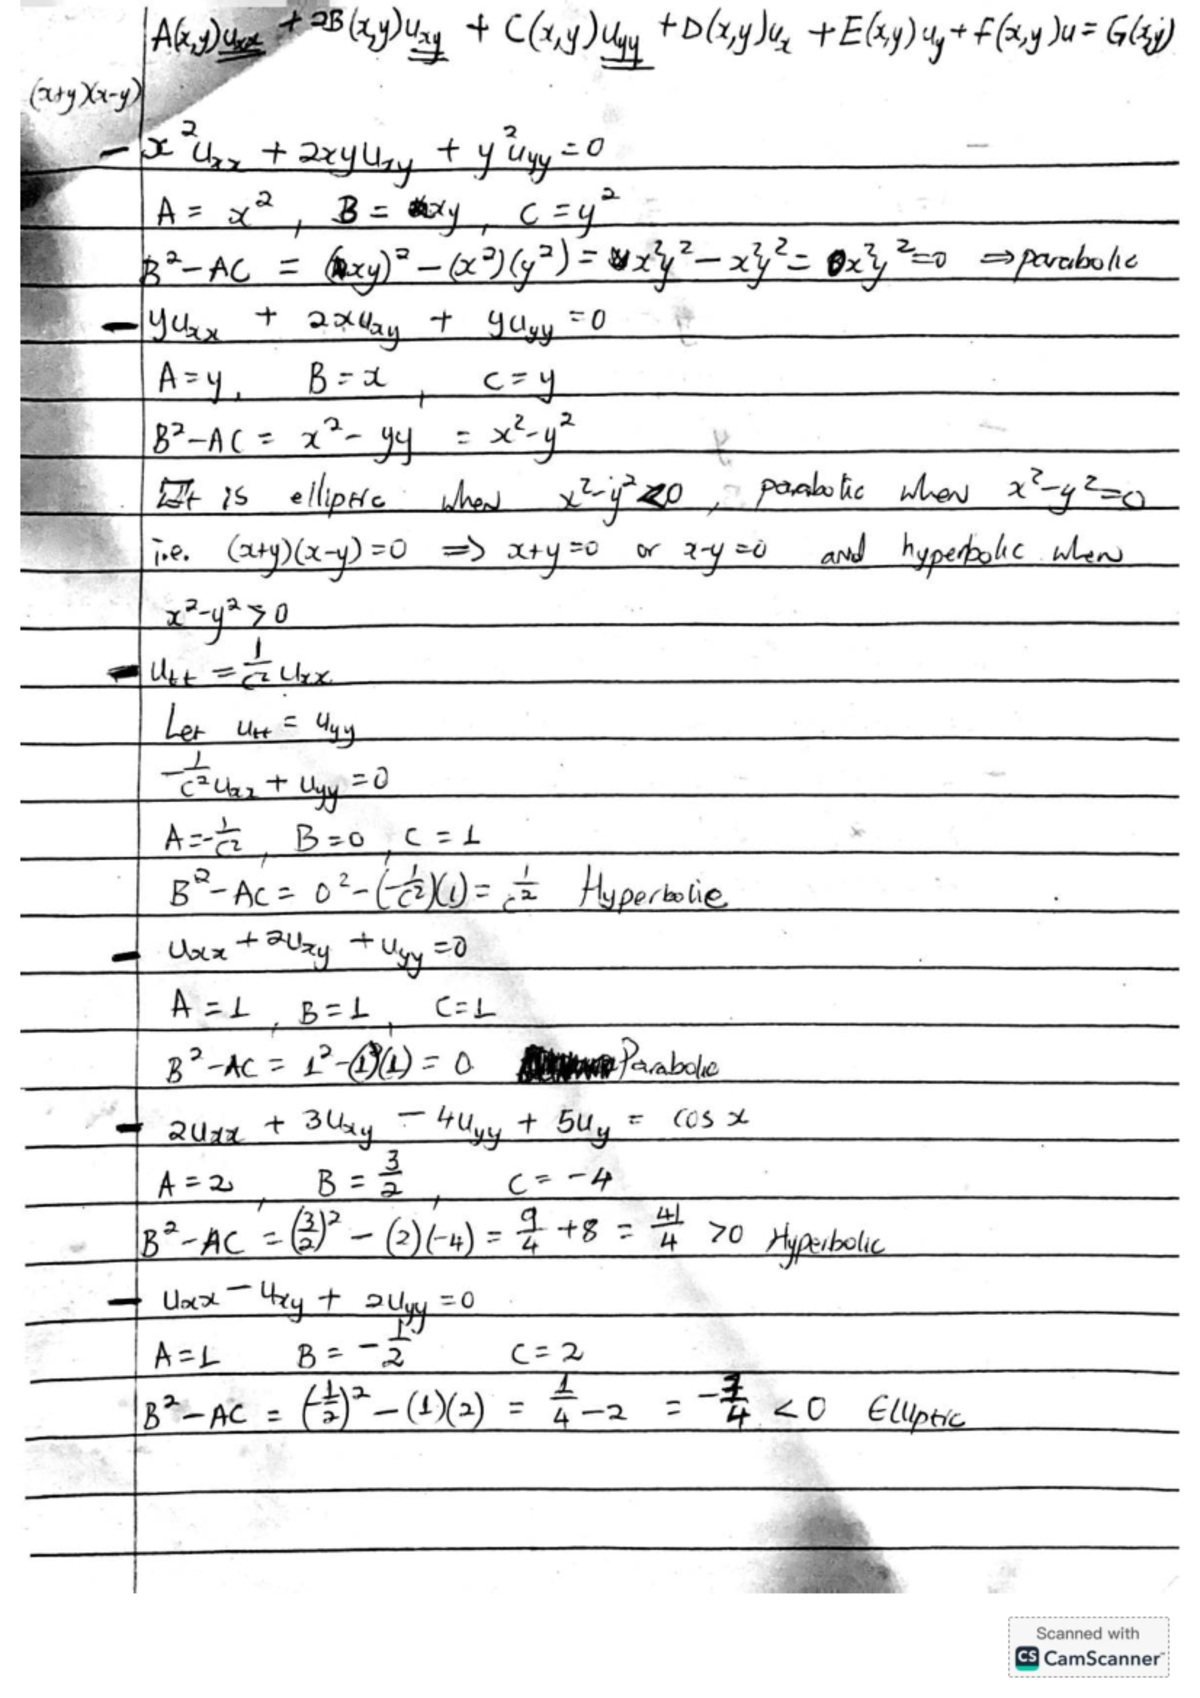 A(x,y)uxx + 2B(x,y)uxy + C(x,y)uyy + D(x,y)ux + E(x,y)uy + F(x,y)u = G(x,y)
(x+y)(x-y)
- x²uxx + 2xyuxy + y²uyy = 0
A = x², B = xy, C = y²
B²-AC = (xy)² - (x²)(y²) = x²y² - x²y² = 0x²y² = 0 ⇒ parabolic
- yuxx + 2xuxy + yuyy = 0
A = y, B = x, C = y
B²-AC = x² - yy = x²-y²
It is elliptic when x²-y² < 0, parabolic when x²-y² = 0
i.e. (x+y)(x-y) = 0 ⇒ x+y = 0 or x-y = 0 and hyperbolic when
x²-y² > 0
- utt = 1/c² uxx
Let utt = uyy
-1/c² uxx + uyy = 0
A = -1/c², B = 0, C = 1
B²-AC = 0² - (-1/c²)(1) = 1/c² Hyperbolic
- uxx + 2uxy + uyy = 0
A = 1, B = 1, C = 1
B²-AC = 1² - (1)(1) = 0 Parabolic
- 2uxx + 3uxy - 4uyy + 5uy = cos x
A = 2, B = 3/2, C = -4
B²-AC = (3/2)² - (2)(-4) = 9/4 + 8 = 41/4 > 0 Hyperbolic
- uxx - uxy + 2uyy = 0
A = 1 B = -1/2 C = 2
B²-AC = (-1/2)² - (1)(2) = 1/4 - 2 = -7/4 < 0 Elliptic
Scanned with
CS CamScanner